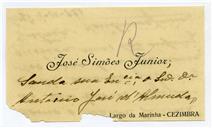 R
José Simões Junior,
Sauda sua Ex.cia o Snr. Dr.
António José d'Almeida,
Largo da Marinha - CEZIMBRA